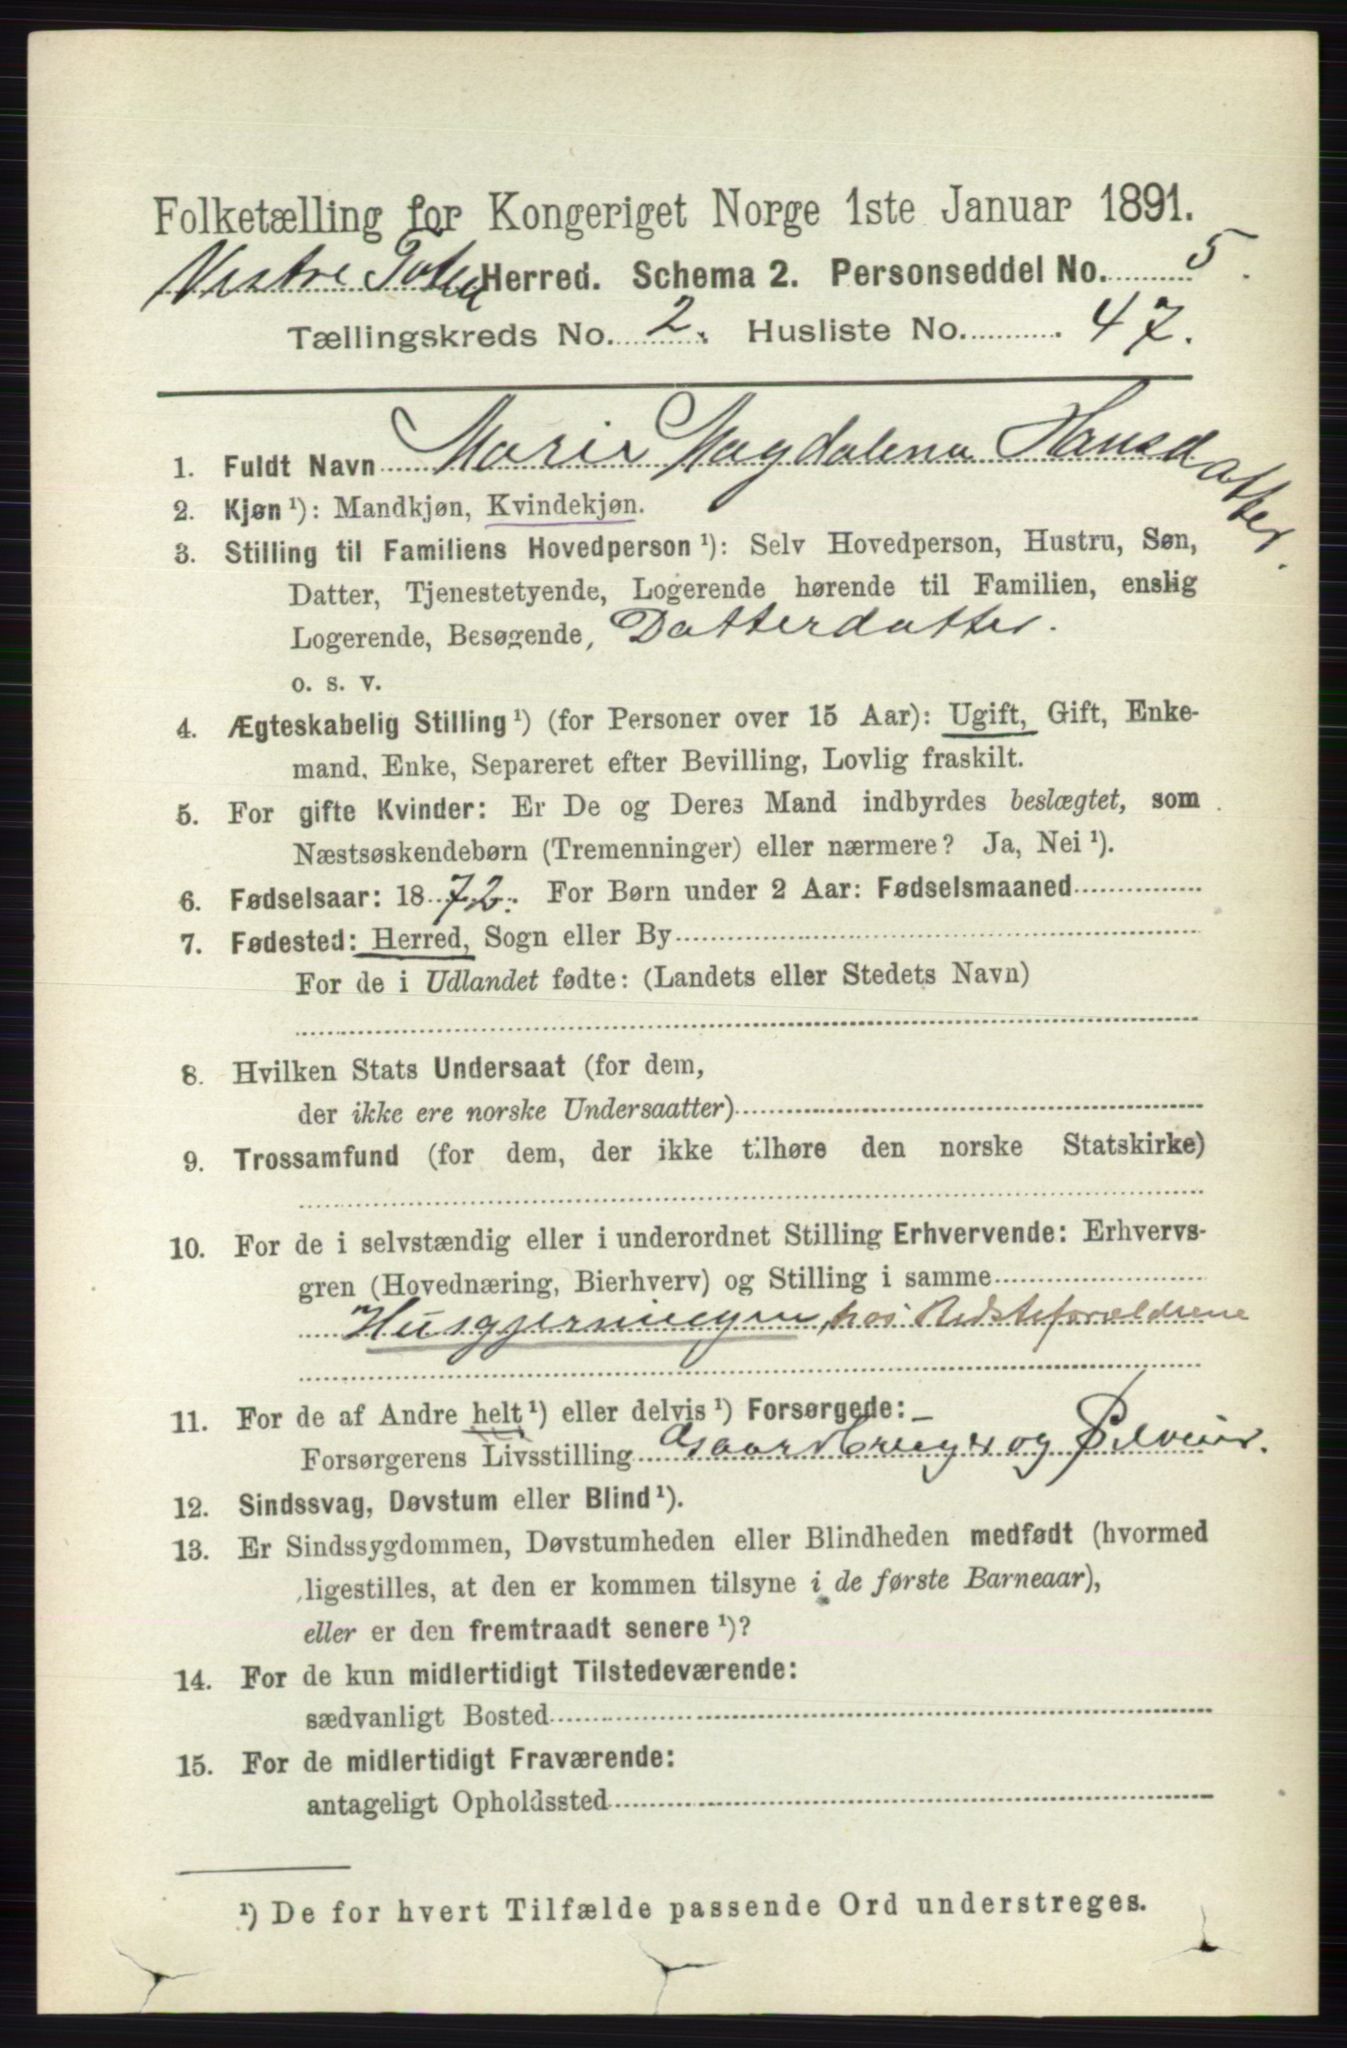 Folketælling for Kongeriget Norge 1ste Januar 1891.
Vestre Toten Herred. Schema 2. Personseddel No. 5.
Tællingskreds No. 2. Husliste No. 47.
1. Fuldt Navn Marie Magdalena Hansdatter.
2. Kjøn ¹): Mandkjøn, Kvindekjøn.
3. Stilling til Familiens Hovedperson ¹): Selv Hovedperson, Hustru, Søn,
Datter, Tjenestetyende, Logerende hørende til Familien, enslig
Logerende, Besøgende, Datterdatter.
o. s. v.
4. Ægteskabelig Stilling ¹) (for Personer over 15 Aar): Ugift, Gift, Enke-
mand, Enke, Separeret efter Bevilling, Lovlig fraskilt.
5. For gifte Kvinder: Er De og Deres Mand indbyrdes beslægtet, som
Næstsøskendebørn (Tremenninger) eller nærmere? Ja, Nei ¹).
6. Fødselsaar: 1872. For Børn under 2 Aar: Fødselsmaaned
7. Fødested: Herred, Sogn eller By
For de i Udlandet fødte: (Landets eller Stedets Navn)
8. Hvilken Stats Undersaat (for dem,
der ikke ere norske Undersaatter)
9. Trossamfund (for dem, der ikke tilhøre den norske Statskirke)
10. For de i selvstændig eller i underordnet Stilling Erhvervende: Erhvervs-
gren (Hovednæring, Bierhverv) og Stilling i samme
Husgjerningen hos Bedsteforældrene
11. For de af Andre helt ¹) eller delvis ¹) Forsørgede:
Forsørgerens Livsstilling Gaardbruger og
12. Sindssvag, Døvstum eller Blind ¹).
13. Er Sindssygdommen, Døvstumheden eller Blindheden medfødt (hvormed
ligestilles, at den er kommen tilsyne i de første Barneaar),
eller er den fremtraadt senere ¹)?
14. For de kun midlertidigt Tilstedeværende:
sædvanligt Bosted
15. For de midlertidigt Fraværende:
antageligt Opholdssted
¹) De for hvert Tilfælde passende Ord understreges.